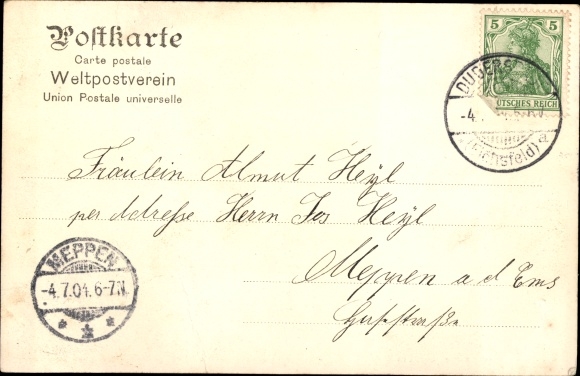 Postkarte
Carte postale
Weltpostverein
Union Postale universelle
5 5
DEUTSCHES REICH
(Eichsfeld) a
Fräulein Almut Heyl
per Adresse Herrn Jos Heyl
Meppen a d Ems
MEPPEN
-4.7.04. 6-7N.